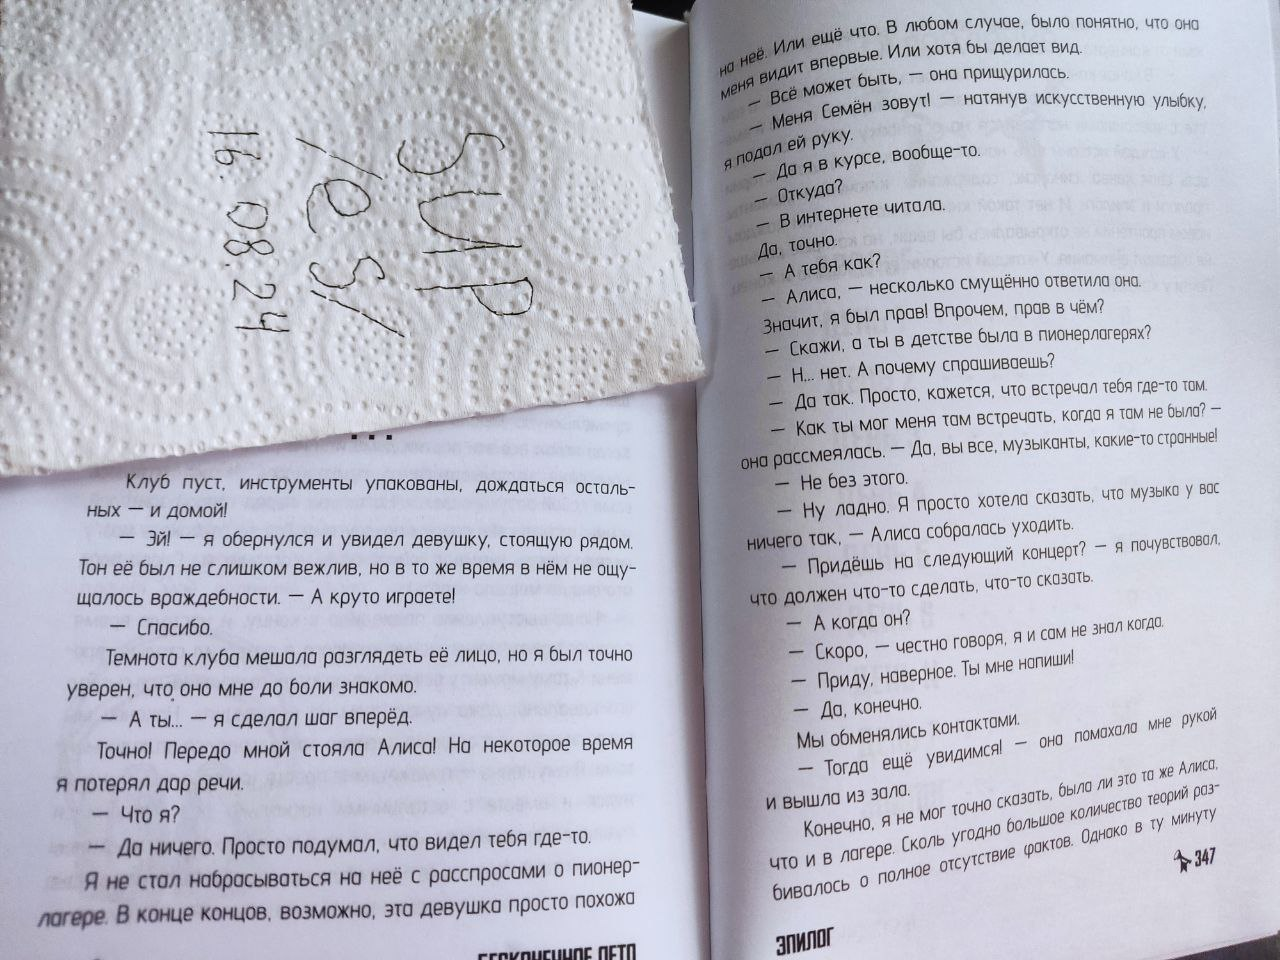 SUP
16.08.24
...
Клуб пуст, инструменты упакованы, дождаться осталь-
ных — и домой!
— Эй! — я обернулся и увидел девушку, стоящую рядом.
Тон её был не слишком вежлив, но в то же время в нём не ощу-
щалось враждебности. — А круто играете!
— Спасибо.
Темнота клуба мешала разглядеть её лицо, но я был точно
уверен, что оно мне до боли знакомо.
— А ты... — я сделал шаг вперёд.
Точно! Передо мной стояла Алиса! На некоторое время
я потерял дар речи.
— Что я?
— Да ничего. Просто подумал, что видел тебя где-то.
Я не стал набрасываться на неё с расспросами о пионер-
лагере. В конце концов, возможно, эта девушка просто похожа
БЕСКОНЕЧНОЕ ЛЕТО
на неё. Или ещё что. В любом случае, было понятно, что она
меня видит впервые. Или хотя бы делает вид.
— Всё может быть, — она прищурилась.
— Меня Семён зовут! — натянув искусственную улыбку,
я подал ей руку.
— Да я в курсе, вообще-то.
— Откуда?
— В интернете читала.
Да, точно.
— А тебя как?
— Алиса, — несколько смущённо ответила она.
Значит, я был прав! Впрочем, прав в чём?
— Скажи, а ты в детстве была в пионерлагерях?
— Н... нет. А почему спрашиваешь?
— Да так. Просто, кажется, что встречал тебя где-то там.
— Как ты мог меня там встречать, когда я там не была? —
она рассмеялась. — Да, вы все, музыканты, какие-то странные!
— Не без этого.
— Ну ладно. Я просто хотела сказать, что музыка у вас
ничего так, — Алиса собралась уходить.
— Придёшь на следующий концерт? — я почувствовал,
что должен что-то сделать, что-то сказать.
— А когда он?
— Скоро, — честно говоря, я и сам не знал когда.
— Приду, наверное. Ты мне напиши!
— Да, конечно.
Мы обменялись контактами.
— Тогда ещё увидимся! — она помахала мне рукой
и вышла из зала.
Конечно, я не мог точно сказать, была ли это та же Алиса,
что и в лагере. Сколь угодно большое количество теорий раз-
бивалось о полное отсутствие фактов. Однако в ту минуту
347
ЭПИЛОГ